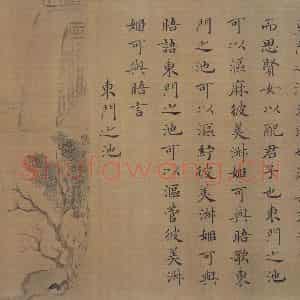 而思賢女以配君子也東門之池
可以漚麻彼美淑姬可與晤歌東
門之池可以漚紵彼美淑姬可與
晤語東門之池可以漚菅彼美淑
姬可與晤言
東門之池